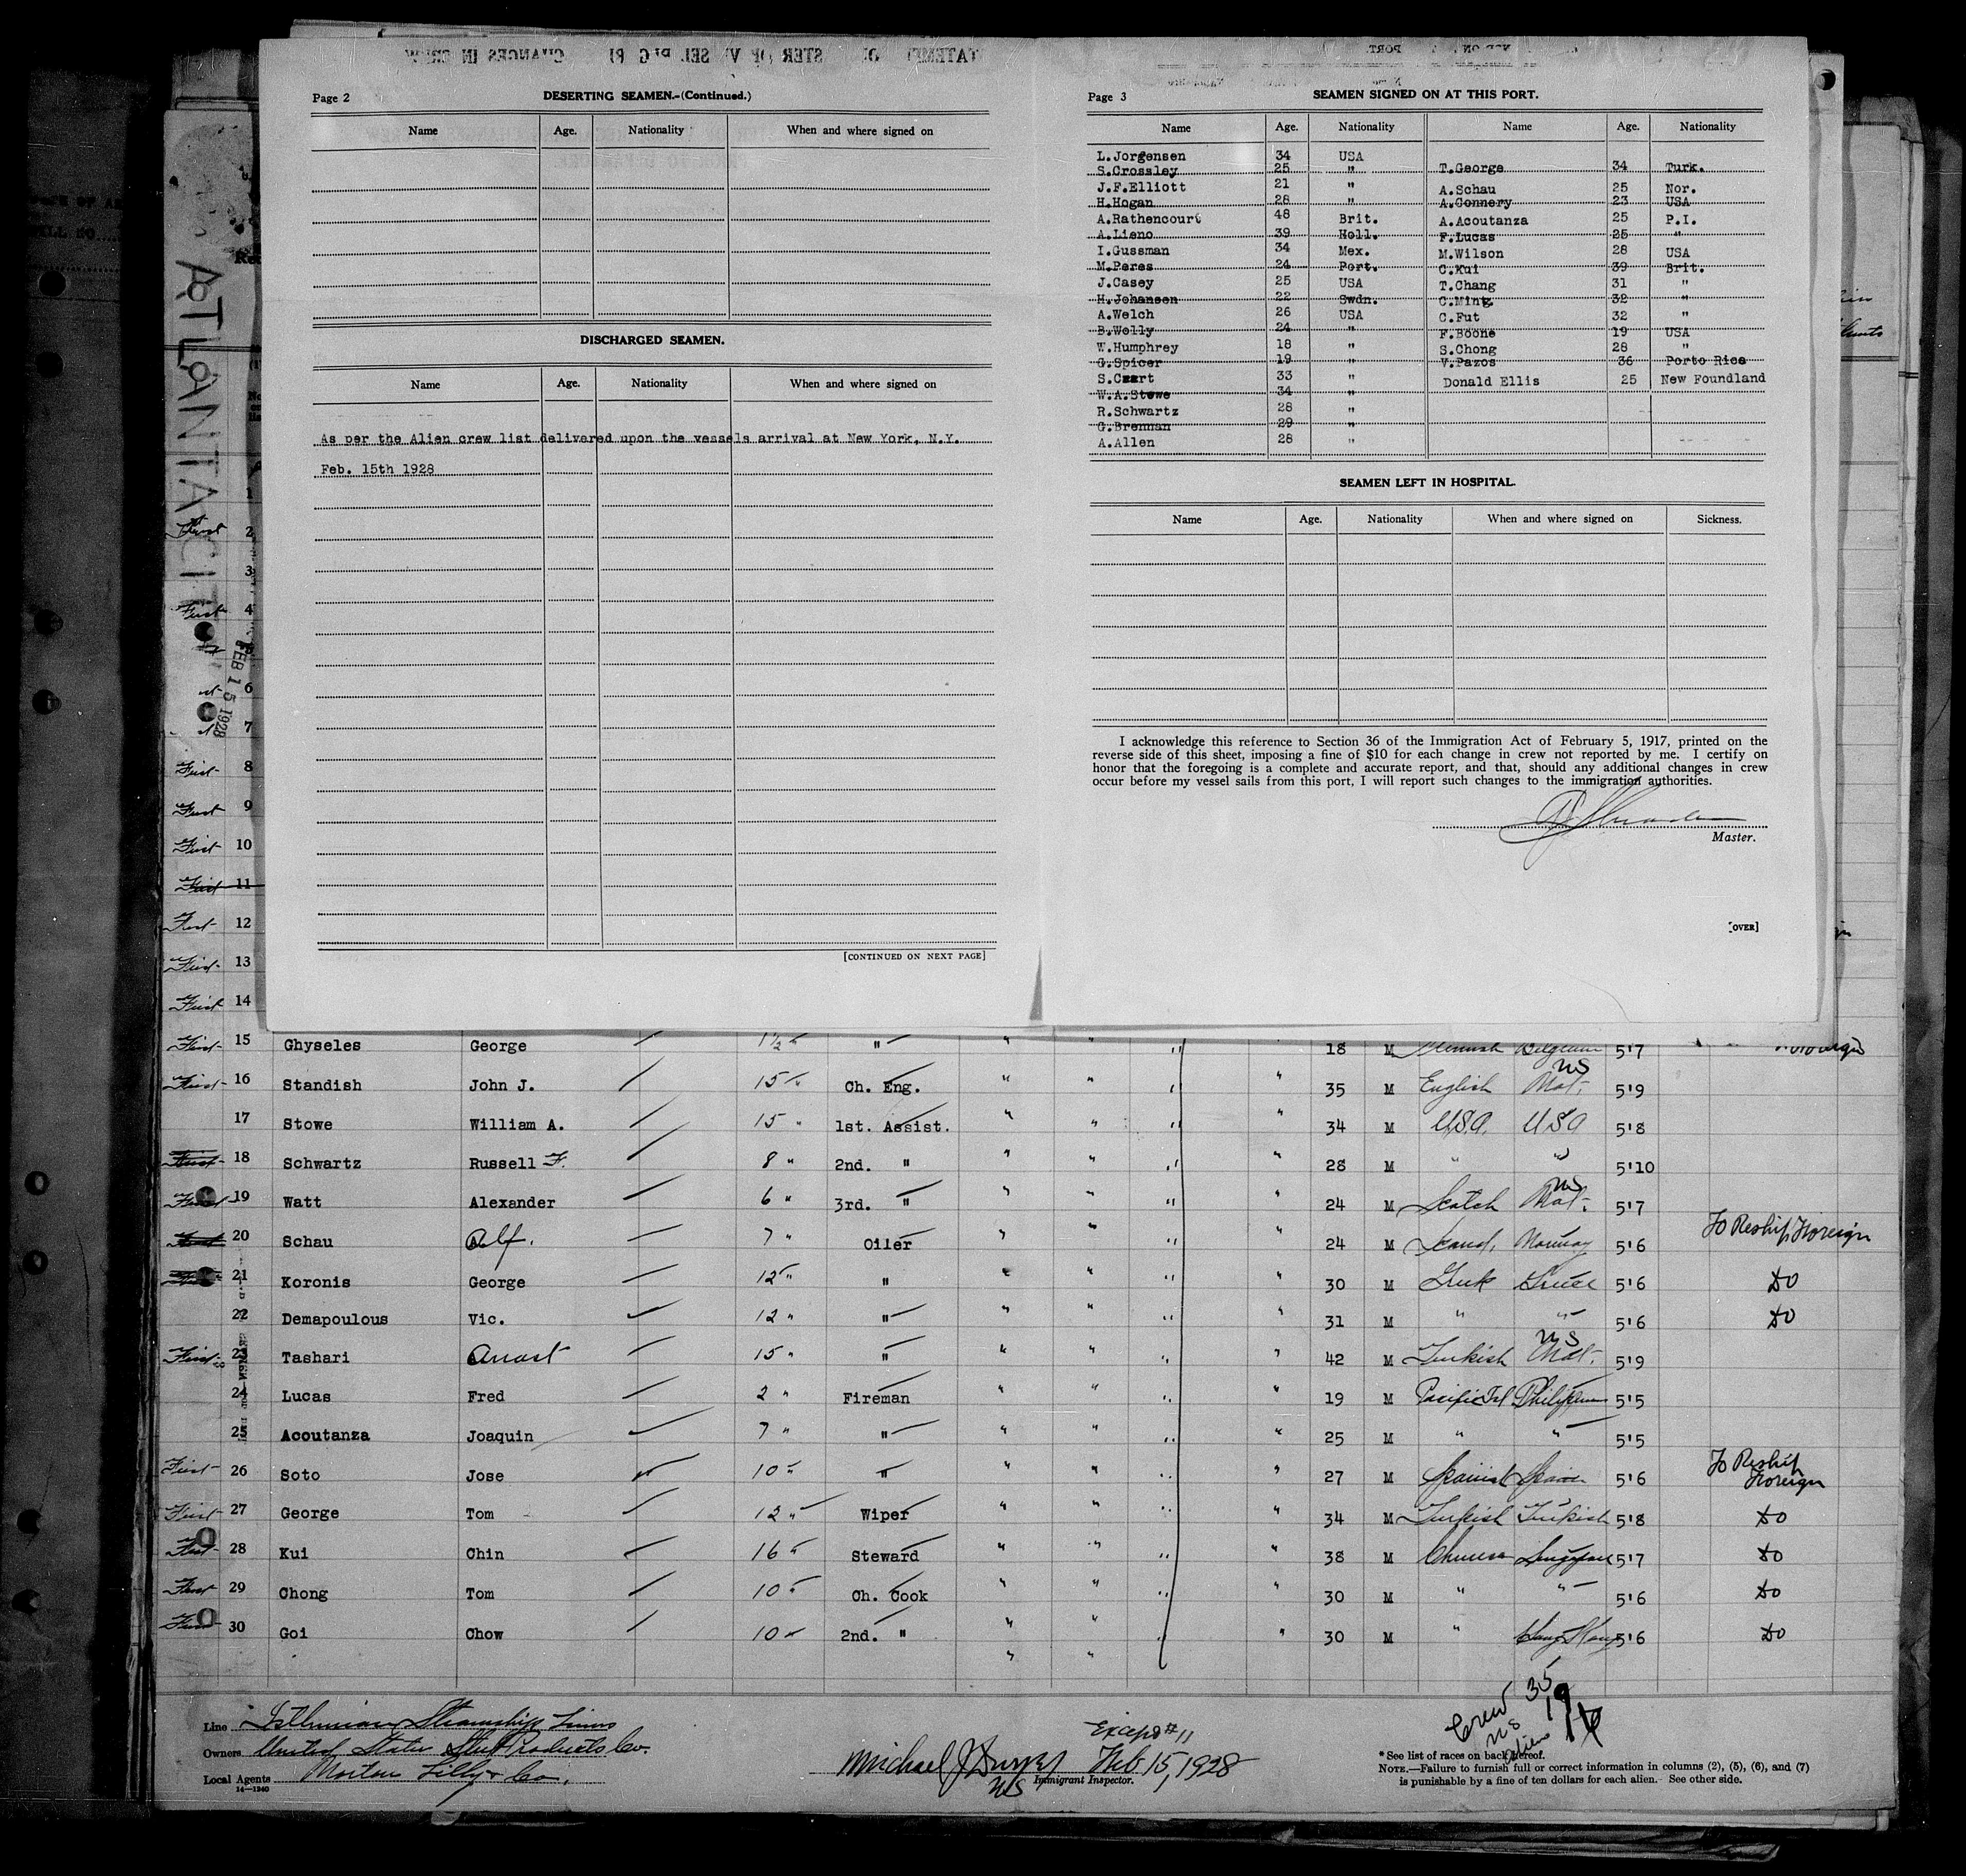 Page 2 DESERTING SEAMEN.-(Continued.)
Name Age. Nationality When and where signed on
DISCHARGED SEAMEN.
Name Age. Nationality When and where signed on
As per the Alien crew list delivered upon the vessels arrival at New York, N.Y.
Feb. 15th 1928
[CONTINUED ON NEXT PAGE]
Page 3 SEAMEN SIGNED ON AT THIS PORT.
Name Age. Nationality Name Age. Nationality
L.Jorgensen 34 USA
S.Crossley 25 " T.George 34 Turk.
J.F.Elliott 21 " A.Schau 25 Nor.
H.Hogan 28 " A.Connery 23 USA
A.Rathencourt 48 Brit. A.Acoutanza 25 P.I.
A.Lieno 39 Holl. F.Lucas 25 "
I.Gussman 34 Mex. M.Wilson 28 USA
M.Peres 24 Port. C.Kui 39 Brit.
J.Casey 25 USA T.Chang 31 "
H.Johansen 22 Swdn. C.Ming 32 "
A.Welch 26 USA C.Fut 32 "
B.Welly 24 " F.Boone 19 USA
W.Humphrey 18 " S.Chong 28 "
G.Spicer 19 " V.Pazos 36 Porto Rica
S.Czart 33 " Donald Ellis 25 New Foundland
W.A.Stowe 34 "
R.Schwartz 28 "
G.Brennan 29 "
A.Allen 28 "
SEAMEN LEFT IN HOSPITAL.
Name Age. Nationality When and where signed on Sickness.
I acknowledge this reference to Section 36 of the Immigration Act of February 5, 1917, printed on the
reverse side of this sheet, imposing a fine of $10 for each change in crew not reported by me. I certify on
honor that the foregoing is a complete and accurate report, and that, should any additional changes in crew
occur before my vessel sails from this port, I will report such changes to the immigration authorities.
Master.
[OVER]
ATLANTA CIT
FEB 15 1928
1
First 2
3
First 4
6
7
First 8
First 9
First 10
First 11
First 12
First 13
First 14
First 15 Ghyseles George 1½ " " " " " " 18 M Flemish Belgium 5'7
First 16 Standish John J. 15 " Ch. Eng. " " " " 35 M English US Nat. 5'9
17 Stowe William A. 15 " 1st. Assist. " " " " 34 M U.S.A. USA 5'8
First 18 Schwartz Russell F. 8 " 2nd. " " " " " 28 M " " 5'10
First 19 Watt Alexander 6 " 3rd. " " " " " 24 M Scotch US Nat. 5'7
First 20 Schau Alf. 7 " Oiler " " " " 24 M Scand. Norway 5'6 To Reship Foreign
First 21 Koronis George 12 " " " " " " 30 M Greek Greece 5'6 do
22 Demapoulous Vic. 12 " " " " " " 31 M " " 5'6 do
First 23 Tashari Anast 15 " " " " " " 42 M Turkish US Nat. 5'9
24 Lucas Fred 2 " Fireman " " " " 19 M Pacific Isl Philippines 5'5
25 Acoutanza Joaquin 7 " " " " " " 25 M " " 5'5
First 26 Soto Jose 10 " " " " " " 27 M Spanish Spain 5'6 To Reship Foreign
First 27 George Tom 12 " Wiper " " " " 34 M Turkish Turkish 5'8 do
First 28 Kui Chin 16 " Steward " " " " 38 M Chinese 5'7 do
First 29 Chong Tom 10 " Ch. Cook " " " " 30 M " " 5'6 do
First 30 Goi Chow 10 " 2nd. " " " " " 30 M " Hong Kong 5'6 do
Crew 35
US 19
Alien 16
Line Isthmian Steamship Lines
Owners United States Steel Products Co.
Local Agents Morton Lilly & Co.
14—1240
Except #11
Michael J Feb 15, 1928
US Immigrant Inspector.
* See list of races on back hereof.
NOTE.—Failure to furnish full or correct information in columns (2), (5), (6), and (7)
is punishable by a fine of ten dollars for each alien. See other side.